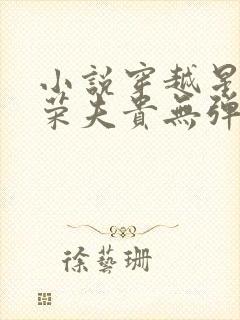 小說穿越星
荣夫貴無彈
徐藝珊